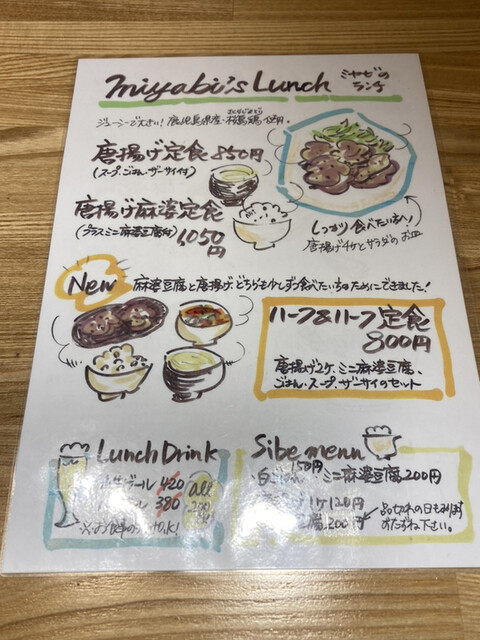 miyabi's Lunch
ミヤビの
ランチ
ジューシーで大きい! 鹿児島県産・桜島鶏使用。
唐揚げ定食 850円
(スープ、ごはん、ザーサイ付)
唐揚げ麻婆定食
(プラスミニ麻婆豆腐付) 1,050円
しっかり食べたい方へ!
唐揚げ4ケとサラダのお皿
New 麻婆豆腐と唐揚げ、どちらも少しずつ食べたい
ためにできました!
ハーフ&ハーフ定食
800円
唐揚げ2ケ、ミニ麻婆豆腐、
ごはん、スープ、ザーサイのセット
Lunch Drink
ビール 420
380
all
200
Sibe menu
150円 ミニ麻婆豆腐 200円
1ケ 120円
200円
品切れの日もあります
おたずね下さい。